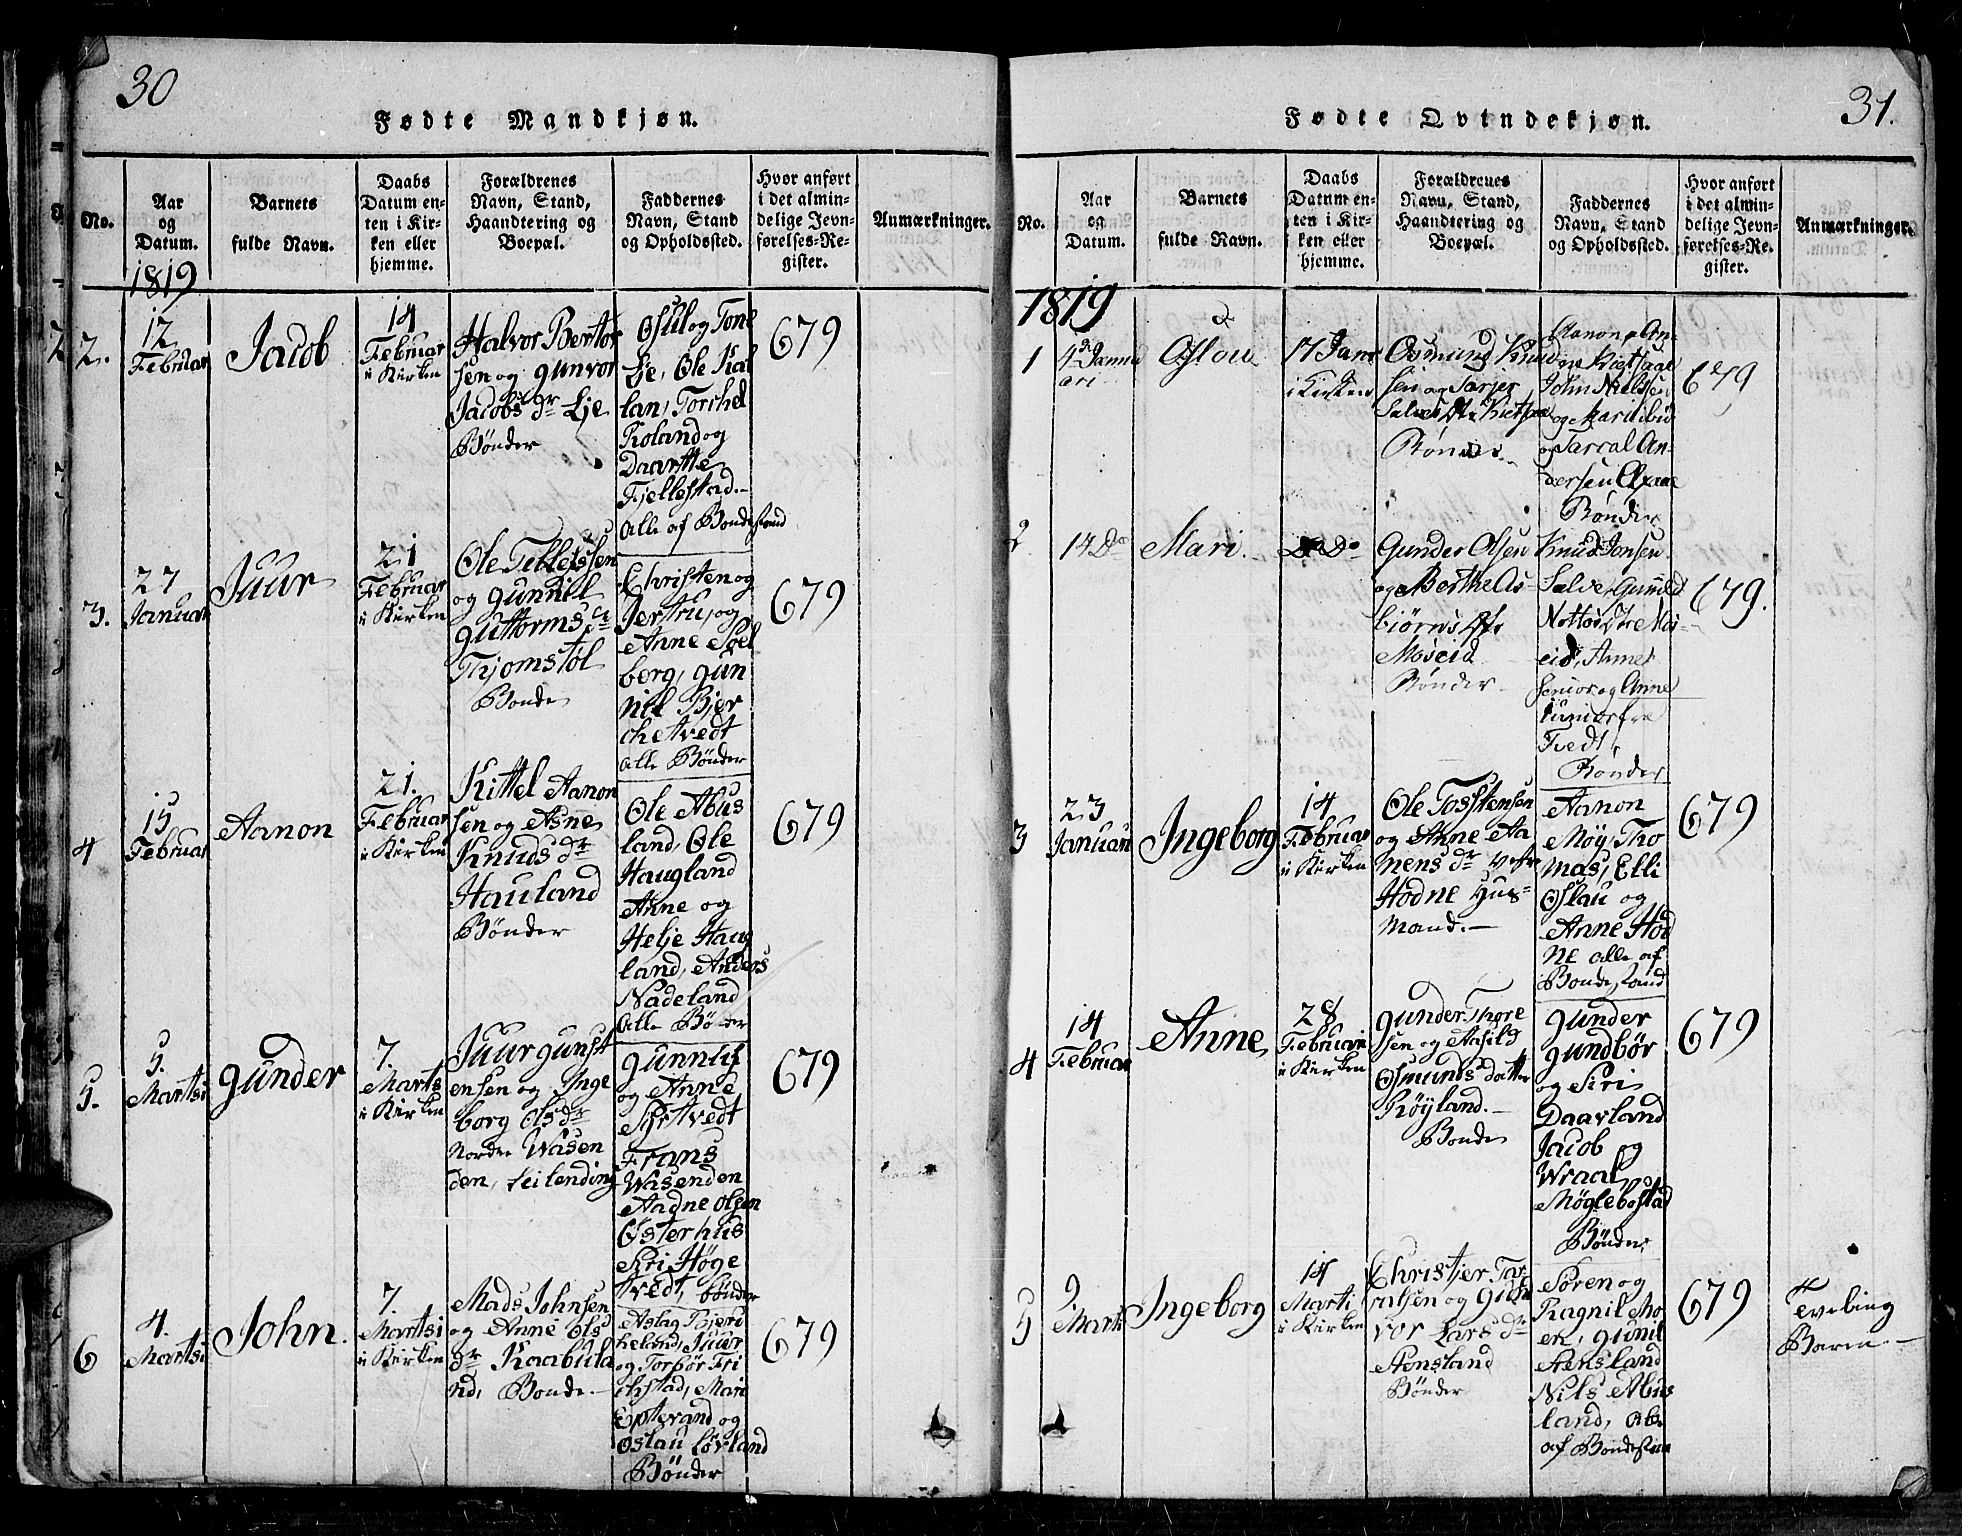 30
Fødte Mandkjøn.
No.
Aar
og
Datum.
Barnets
fulde Navn.
Daabs
Datum en-
ten i Kir-
ken eller
hjemme.
Forældrenes
Navn, Stand,
Haandtering og
Boepæl.
Faddernes
Navn, Stand
og Opholdssted.
Hvor anført
i det almin-
delige Jevn-
førelses-Re-
gister.
Anmærkninger.
1819
2.
12
Februar
Jacob
14
Februar
i Kirken
Halvor Bertor
sen og Gunvor
Jacobs dr Lje
Bønder
Osul og Tone
Lje, Ole Kal
lan, Torchel
Roland og
Daarthe
Fjellestad.
alle af Bondestand
679
3.
27
Januar
Juur
21
Februar
i Kirken
Ole Tellefssen
og Gunnil
Guttorms dr
Trjomstøl
Bonde
Christen og
Jertru, og
Anne Spel
berg, Gun
nil Bjer
chetvedt
alle Bønder
679
4
15
Februar
Aanon
21.
Februar
i Kirken
Kittel Aanon
sen og Asne
Knuds dr
Hauland
Bønder
Ole Abus
land, Ole
Haugland
Anne og
Helje Haug
land, Anders
Nadeland
alle Bønder
679
5.
5.
Martsi
Gunder
7.
Marts
i Kirken
Juur Gunst
ensen og Inge
borg Ols dr
Nordre Wasen
den, Leilending
Gunnlif
og Anne
Syrtvedt
Frans
Wasenden
Aadne Olsen
Østerhus
Siri Høge
tvedt, bønder
679
6
4.
Martsi
John.
7.
Martsi
i Kirken
Mads Johnsen
og Anne Ols
dr Kaabula
nd, Bonde.
Aslag Bjeri
heland, Juur
og Torbør Fri
chstad, Mari
Epterand og
Oslau Lørland
Bønder
679
31.
Fødte Qvindekjøn.
No.
Aar
og
Datum.
Barnets
fulde Navn.
Daabs
Datum en-
ten i Kir-
ken eller
hjemme.
Forældrenes
Navn, Stand,
Haandtering og
Boepæl.
Faddernes
Navn, Stand
og Opholdssted.
Hvor anført
i det almin-
delige Jevn-
førelses-Re-
gister.
Anmærkninger.
1819
1
4de Janu
ari
Oslou
17 Jan
i Kirken
Osmund Knud
sen og Tarjer
Salves Dtr
Bønder
Aanon og An-
John Nielsen
og Mari
og Tarral An-
dersen
Bønder
679
2
17 Do
Mari.
Do Do
Gunder Olsen
og Berthe As-
biørns Dtr
Moseid
Bønder
Knud Jonsen
Salve, Gunild
Mos-
eid, Anne
senior og Anne
junior fra
Tvedt,
Bønder
679.
3
23
Januari
Ingeborg
14
Februar
i Kirken
Ole Tosstensen
og Anne Aa
mens dr
Hodne Hus-
mand.
Aanon
Møy, Tho
mas, Elli
Oslau og
Anne Hod
ne alle af
Bondestand
679
4
14
Februar
Anne
28
Februari
i Kirken
Gunder Thore
sen og Aasild
Osmunds datter
Røyland.
Bonde
Gunder
Gundbør
og Siri
Daavland
Jacob og
Wraal
Møglebostad
Bønder
679
5
9
Marti
Ingeborg
14
Marti
i Kirken
Christjer Tar
ralsen og Gun
vor Lars dr
Stensland
Bønder
Søren og
Ragnil Mo
en, Gunil
Stensland
Nils Abus
land, alle
af Bondestan
679
Tveling
Barn